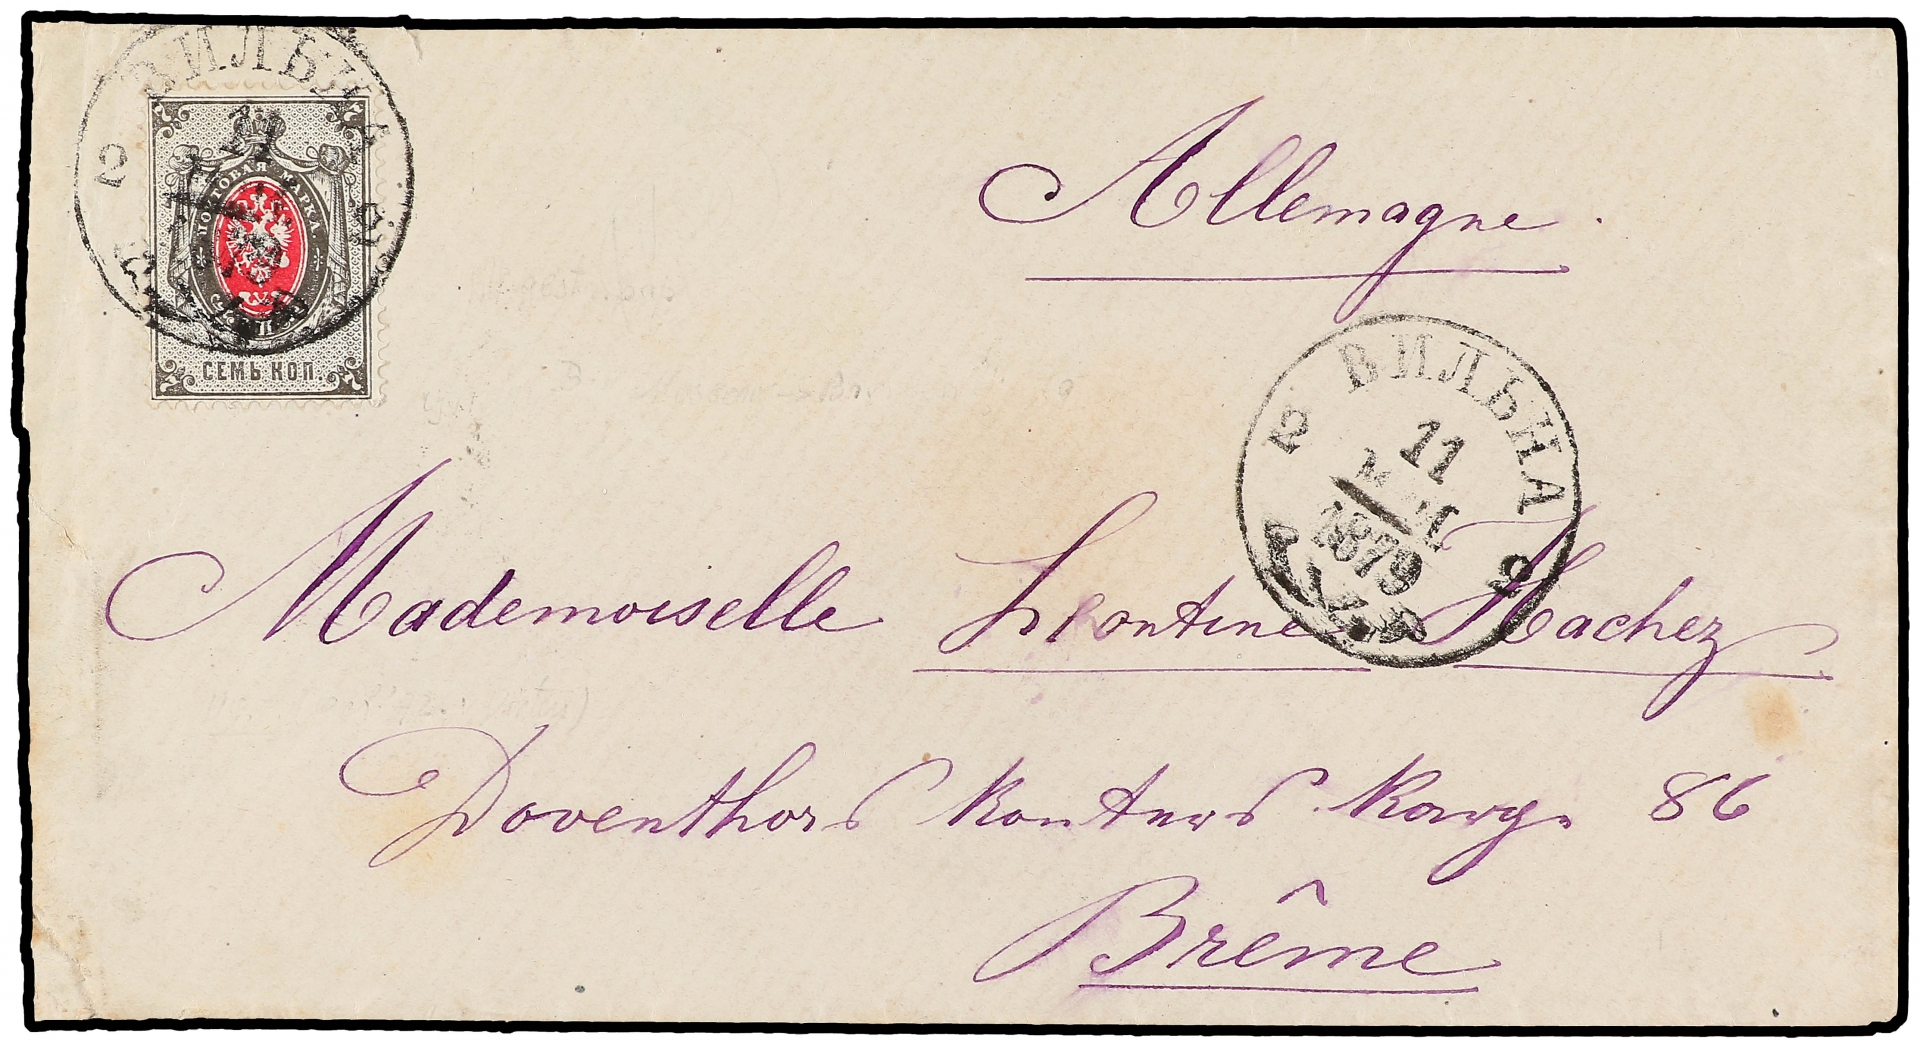 ВИЛЬНА
2
11
ПОЧТОВАЯ МАРКА.
СЕМЬ КОП.
7 7
Allemagne.
ВИЛЬНА
2 2
11
МАЯ
1879
Mademoiselle Leontine Hachez
Doventhors Konters Karge 86
Brême